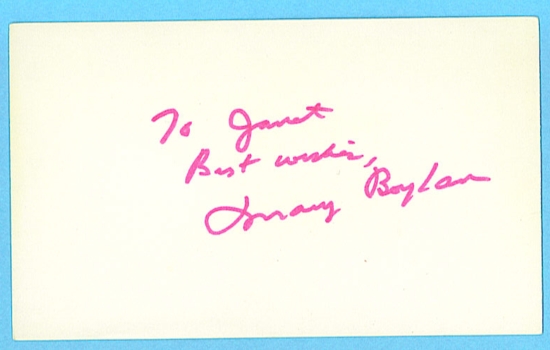 To Janet
Best wishes,
Mary Boylan